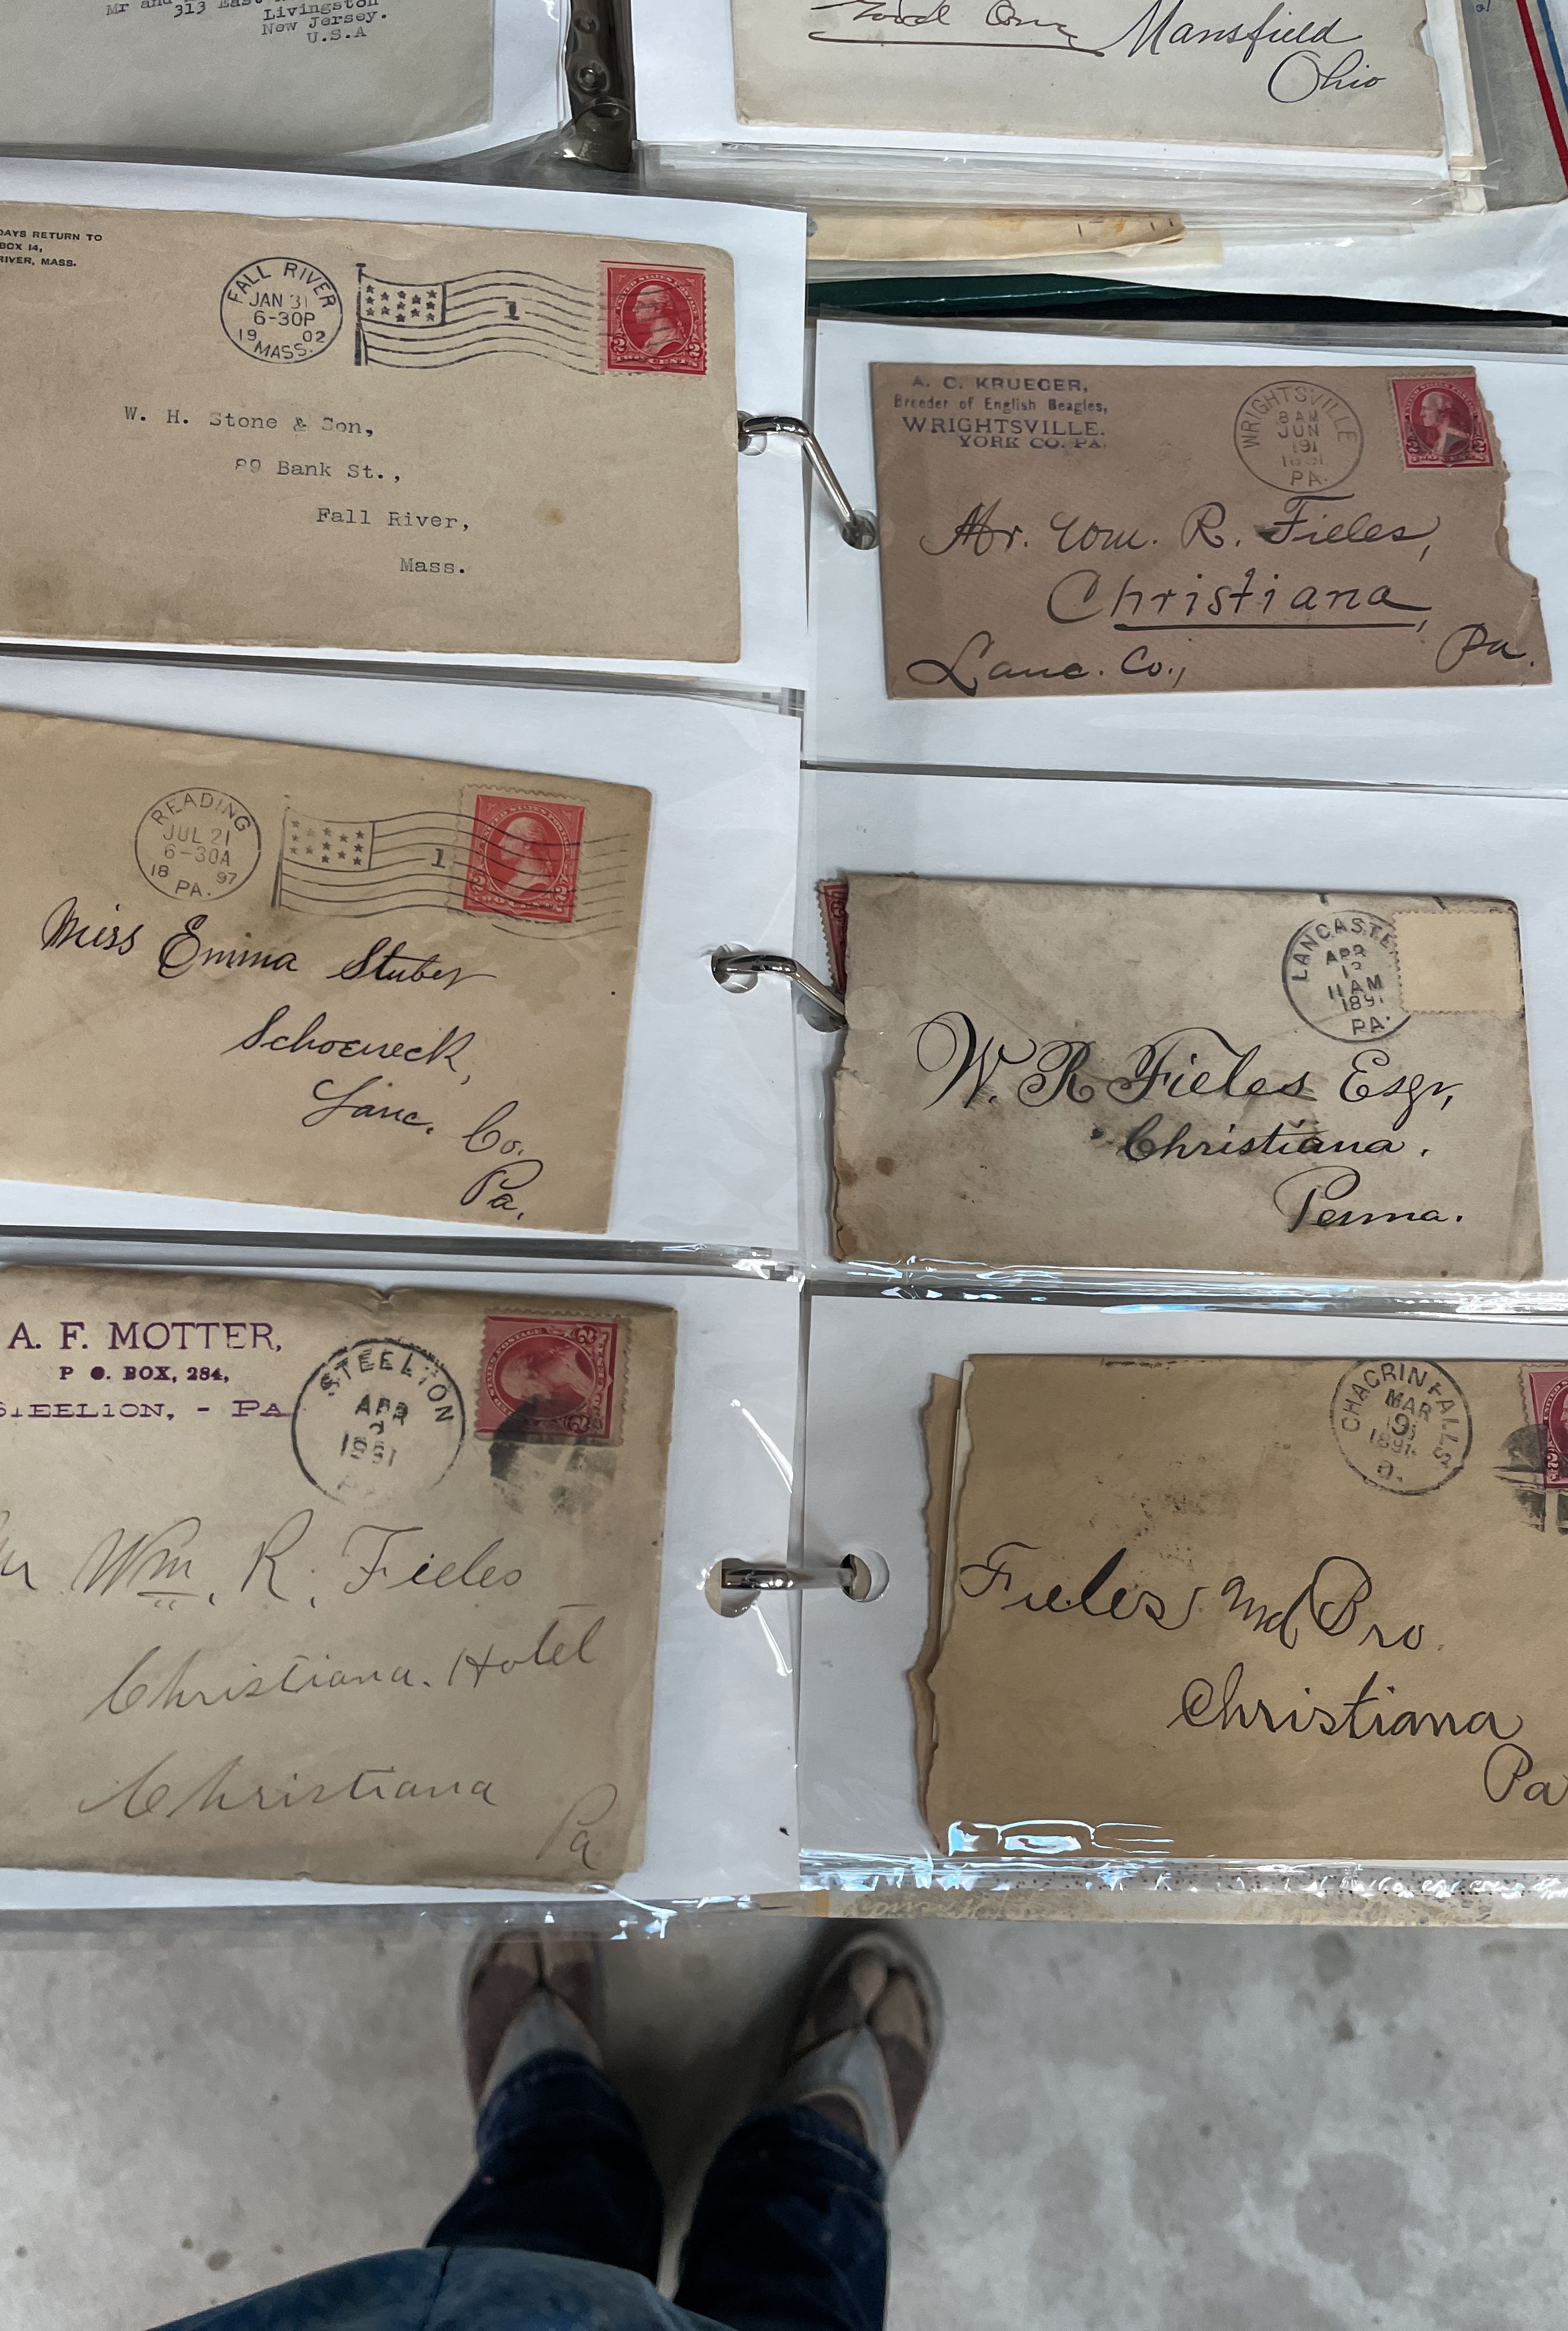 Mr and
313 East
Livingston
New Jersey.
U.S.A
Mansfield
Ohio
DAYS RETURN TO
BOX 14,
RIVER, MASS.
FALL RIVER
JAN 31
6-30P
19 02
MASS.
1
W. H. Stone & Son,
89 Bank St.,
Fall River,
Mass.
A. C. KRUEGER,
Breeder of English Beagles,
WRIGHTSVILLE.
YORK CO. PA.
WRIGHTSVILLE
8 AM
JUN
1891
PA.
Mr. Wm. R. Fieles,
Christiana,
Lanc. Co., Pa.
READING
JUL 21
6-30A
18 97
PA.
1
Miss Emma Stuber
Schoeneck,
Lanc. Co.
Pa.
LANCASTE
APR
11 AM
189
PA.
W. R. Fieles Esqr,
Christiana.
Penna.
A. F. MOTTER,
P O. BOX, 284,
STEELTON, - PA
STEELTON
APR
1891
Wm. R. Fieles
Christiana. Hotel
Christiana
Pa
CHAGRIN FALLS
MAR
9
1891
O.
Fieles and Bro.
Christiana
Pa